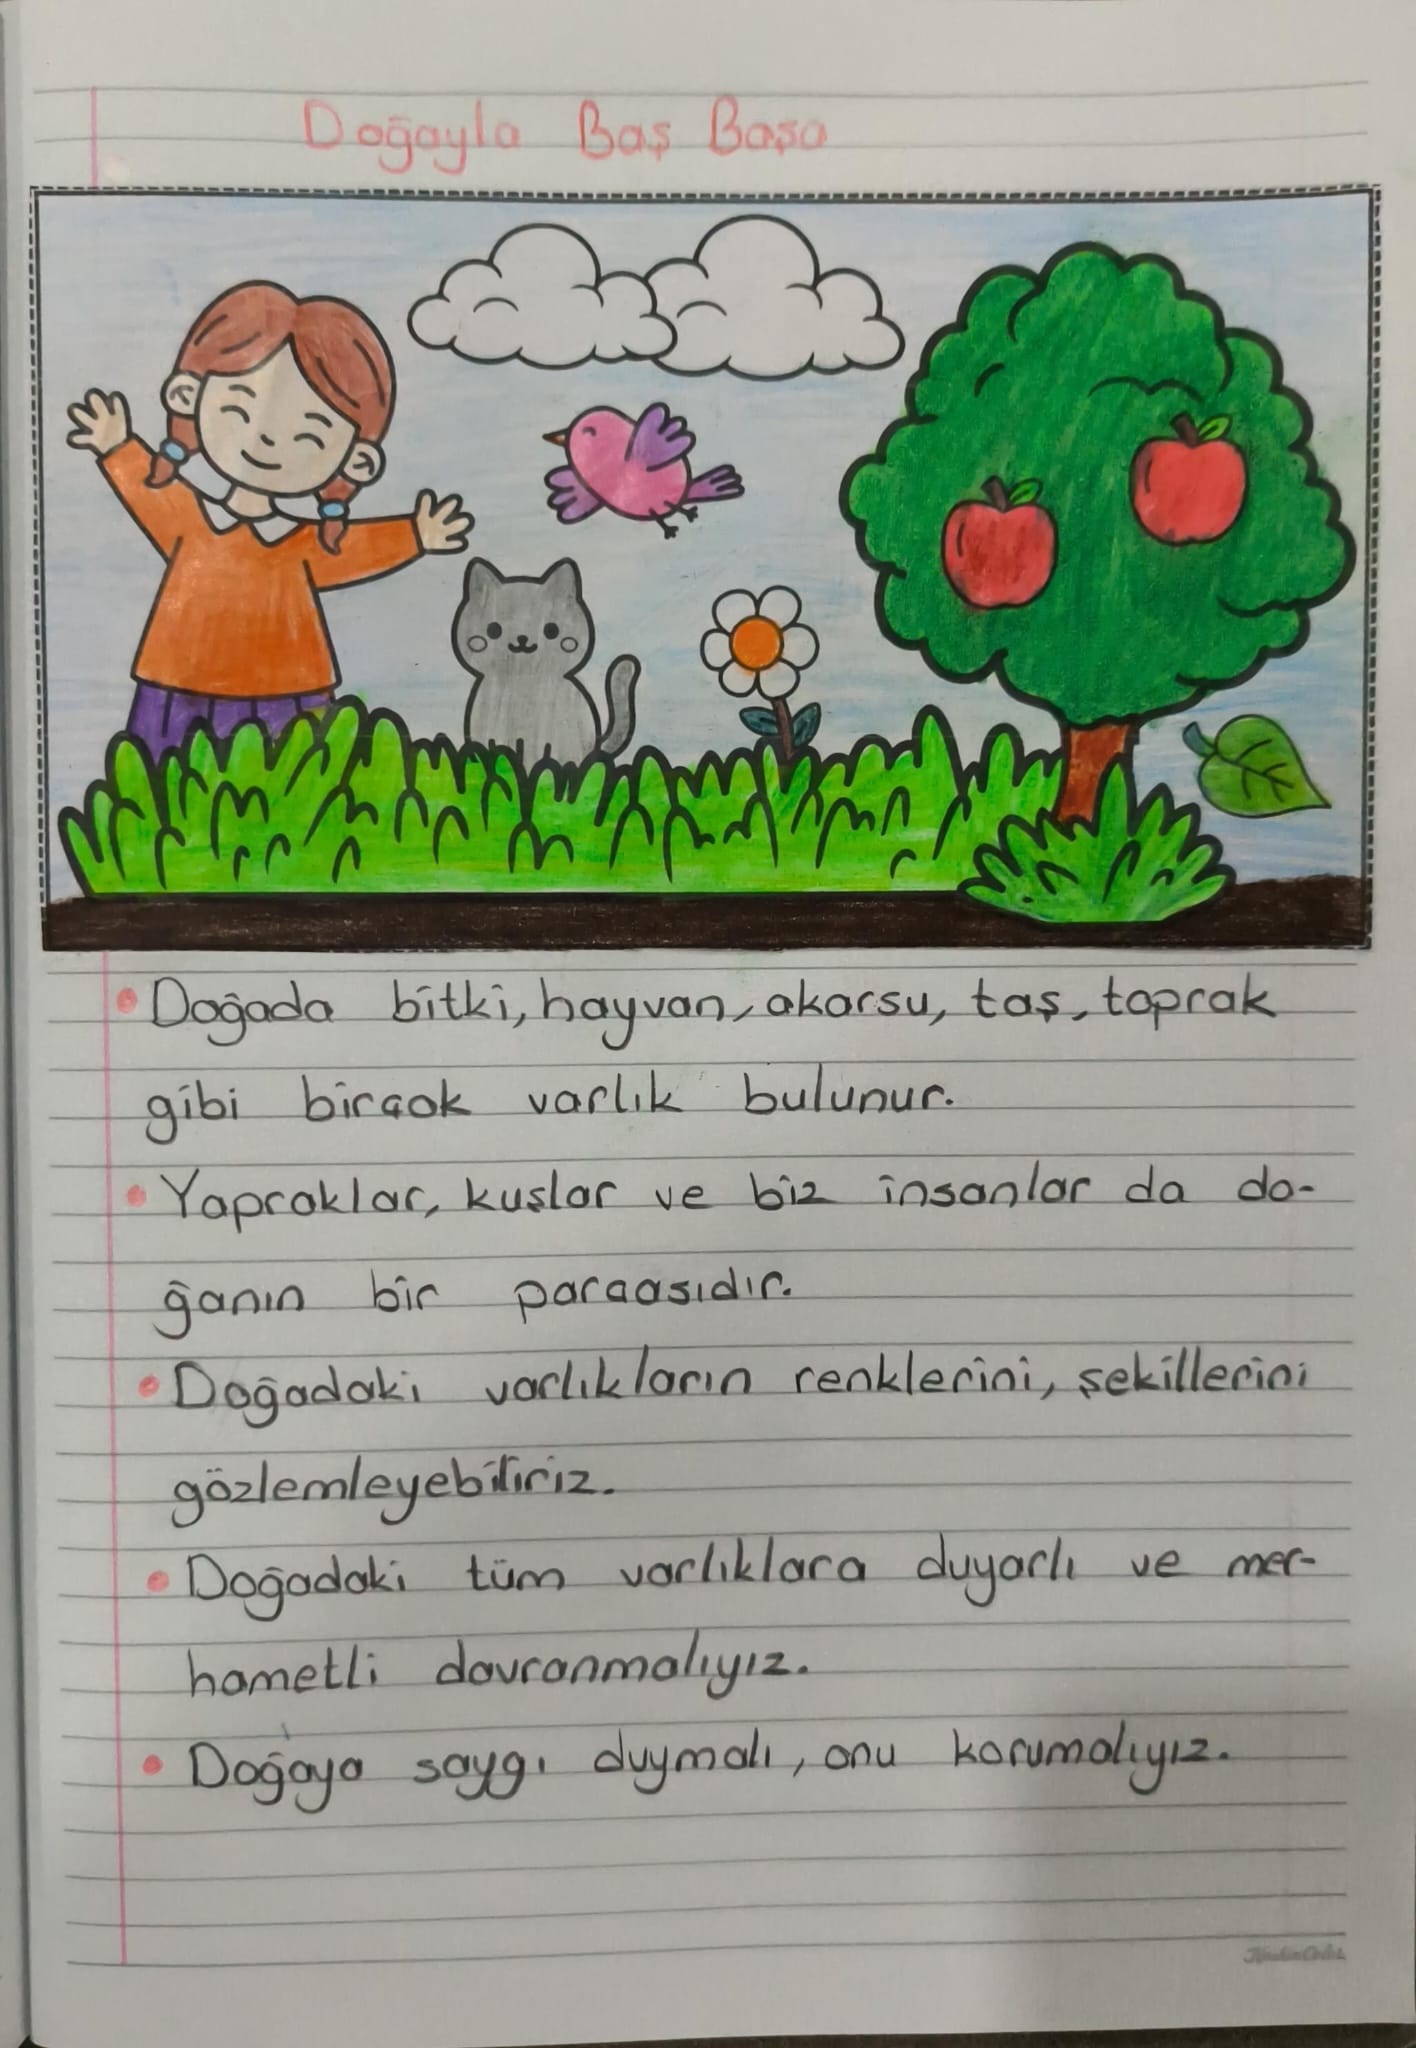 Doğayla Baş Başa
• Doğada bitki, hayvan, akarsu, taş, toprak
gibi birçok varlık bulunur.
• Yapraklar, kuşlar ve biz insanlar da do-
ğanın bir parçasıdır.
• Doğadaki varlıkların renklerini, şekillerini
gözlemleyebiliriz.
• Doğadaki tüm varlıklara duyarlı ve mer-
hametli davranmalıyız.
• Doğaya saygı duymalı, onu korumalıyız.